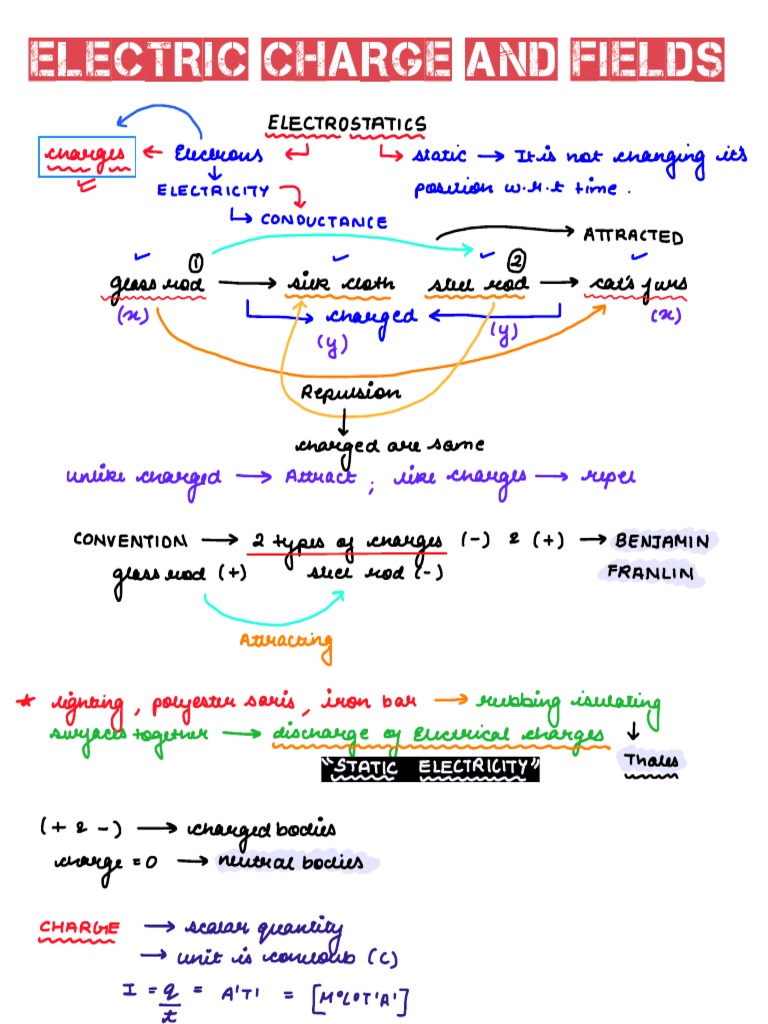 ELECTRIC CHARGE AND FIELDS
ELECTROSTATICS
charges ← Electrons ↵ ↳ static → It is not changing it's
ELECTRICITY position w.r.t time.
↳ CONDUCTANCE
→ ATTRACTED
① ②
glass rod → silk cloth steel rod → cat's furs
(x) → charged ← (y) (x)
(y)
Repulsion
charged are same
unlike charged → Attract ; like charges → repel
CONVENTION → 2 types of charges (-) & (+) → BENJAMIN
glass rod (+) steel rod (-) FRANLIN
Attracting
* lighting, polyester saris, iron bar → rubbing isulating
surfaces together → discharge of Electrical charges ↓
"STATIC ELECTRICITY" Thales
(+ & -) → charged bodies
charge = 0 → neutral bodies
CHARGE → scalar quantity
→ unit is couloub (C)
I = q/t = A¹T¹ = [M⁰L⁰T¹A¹]